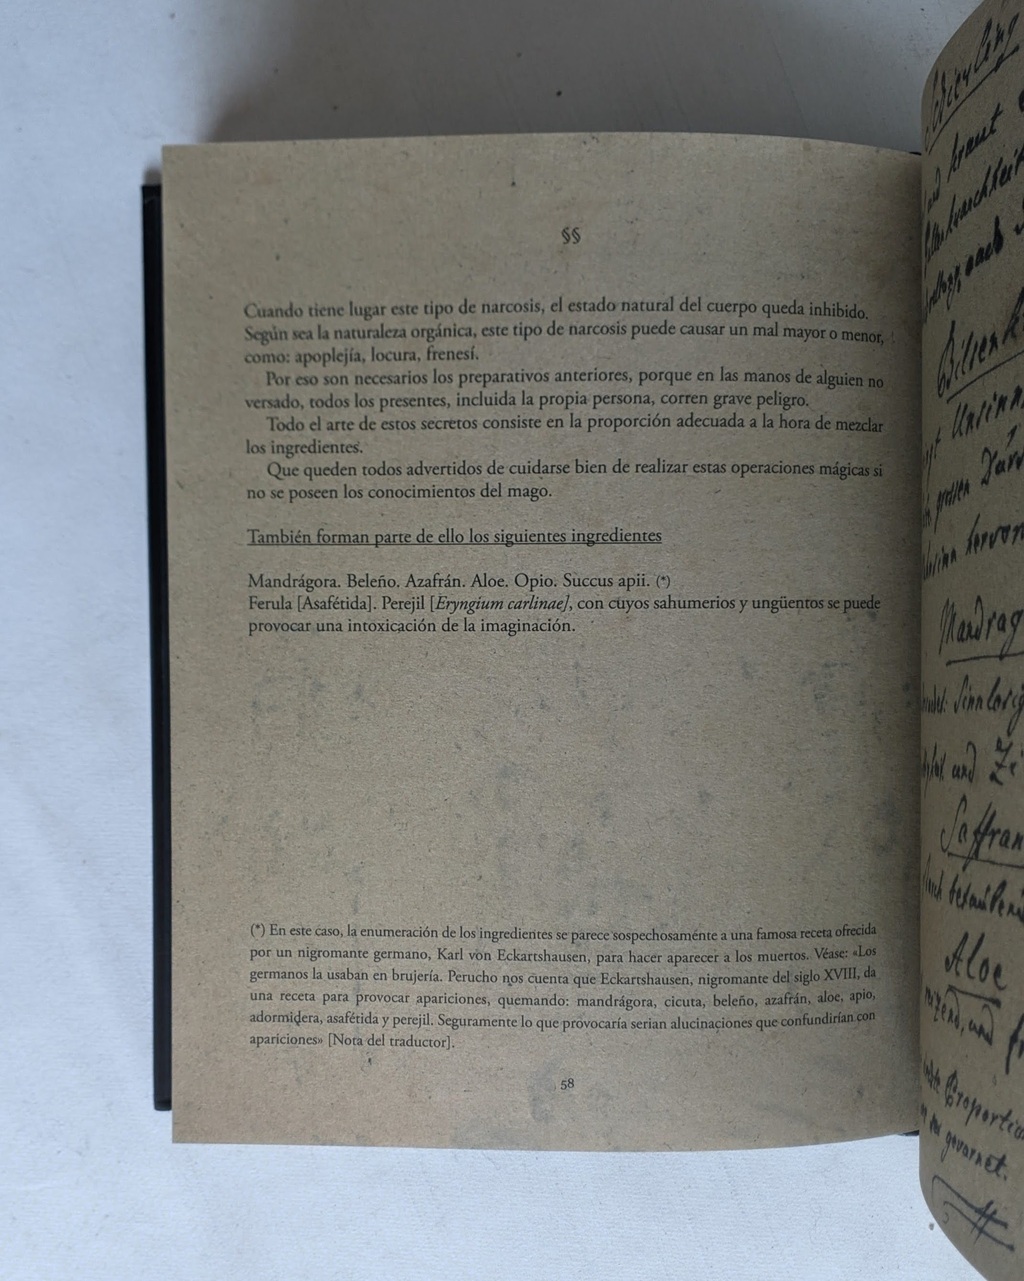 §§
Cuando tiene lugar este tipo de narcosis, el estado natural del cuerpo queda inhibido.
Según sea la naturaleza orgánica, este tipo de narcosis puede causar un mal mayor o menor,
como: apoplejía, locura, frenesí.
Por eso son necesarios los preparativos anteriores, porque en las manos de alguien no
versado, todos los presentes, incluida la propia persona, corren grave peligro.
Todo el arte de estos secretos consiste en la proporción adecuada a la hora de mezclar
los ingredientes.
Que queden todos advertidos de cuidarse bien de realizar estas operaciones mágicas si
no se poseen los conocimientos del mago.
También forman parte de ello los siguientes ingredientes
Mandrágora. Beleño. Azafrán. Aloe. Opio. Succus apii. (*)
Ferula [Asafétida]. Perejil [Eryngium carlinae], con cuyos sahumerios y ungüentos se puede
provocar una intoxicación de la imaginación.
(*) En este caso, la enumeración de los ingredientes se parece sospechosamente a una famosa receta ofrecida
por un nigromante germano, Karl von Eckartshausen, para hacer aparecer a los muertos. Véase: «Los
germanos la usaban en brujería. Perucho nos cuenta que Eckartshausen, nigromante del siglo XVIII, da
una receta para provocar apariciones, quemando: mandrágora, cicuta, beleño, azafrán, aloe, apio,
adormidera, asafétida y perejil. Seguramente lo que provocaría serian alucinaciones que confundirían con
apariciones» [Nota del traductor].
58
kraut
Mandrag
und
Saffran
Aloe
Proportio
gewarnet.